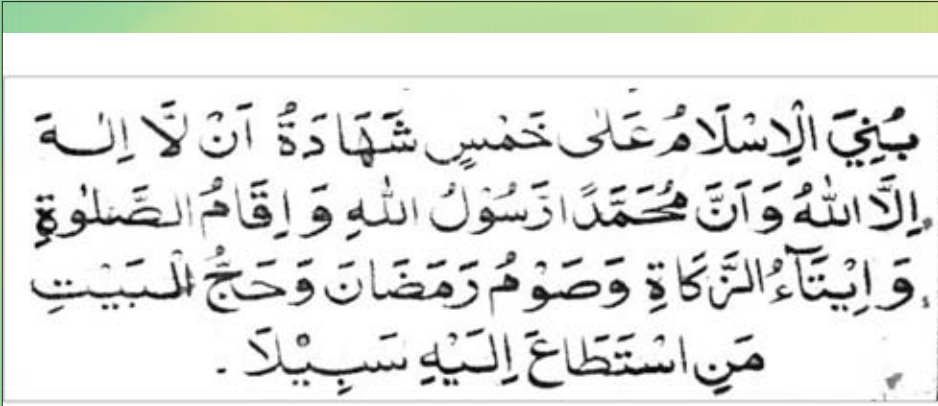 بُنِيَ الْاِسْلَامُ عَلٰى خَمْسٍ شَهَادَةُ اَنْ لَّا اِلٰهَ
اِلَّا اللّٰهُ وَ اَنَّ مُحَمَّدًا رَسُوْلُ اللّٰهِ وَ اِقَامُ الصَّلٰوةِ
وَ اِيْتَآءُ الزَّكَاةِ وَصَوْمُ رَمَضَانَ وَحَجُّ الْبَيْتِ
مَنِ اسْتَطَاعَ اِلَيْهِ سَبِيْلًا .